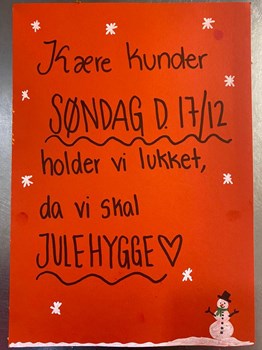 Kære kunder
SØNDAG D. 17/12
holder vi lukket,
da vi skal
JULEHYGGE♡